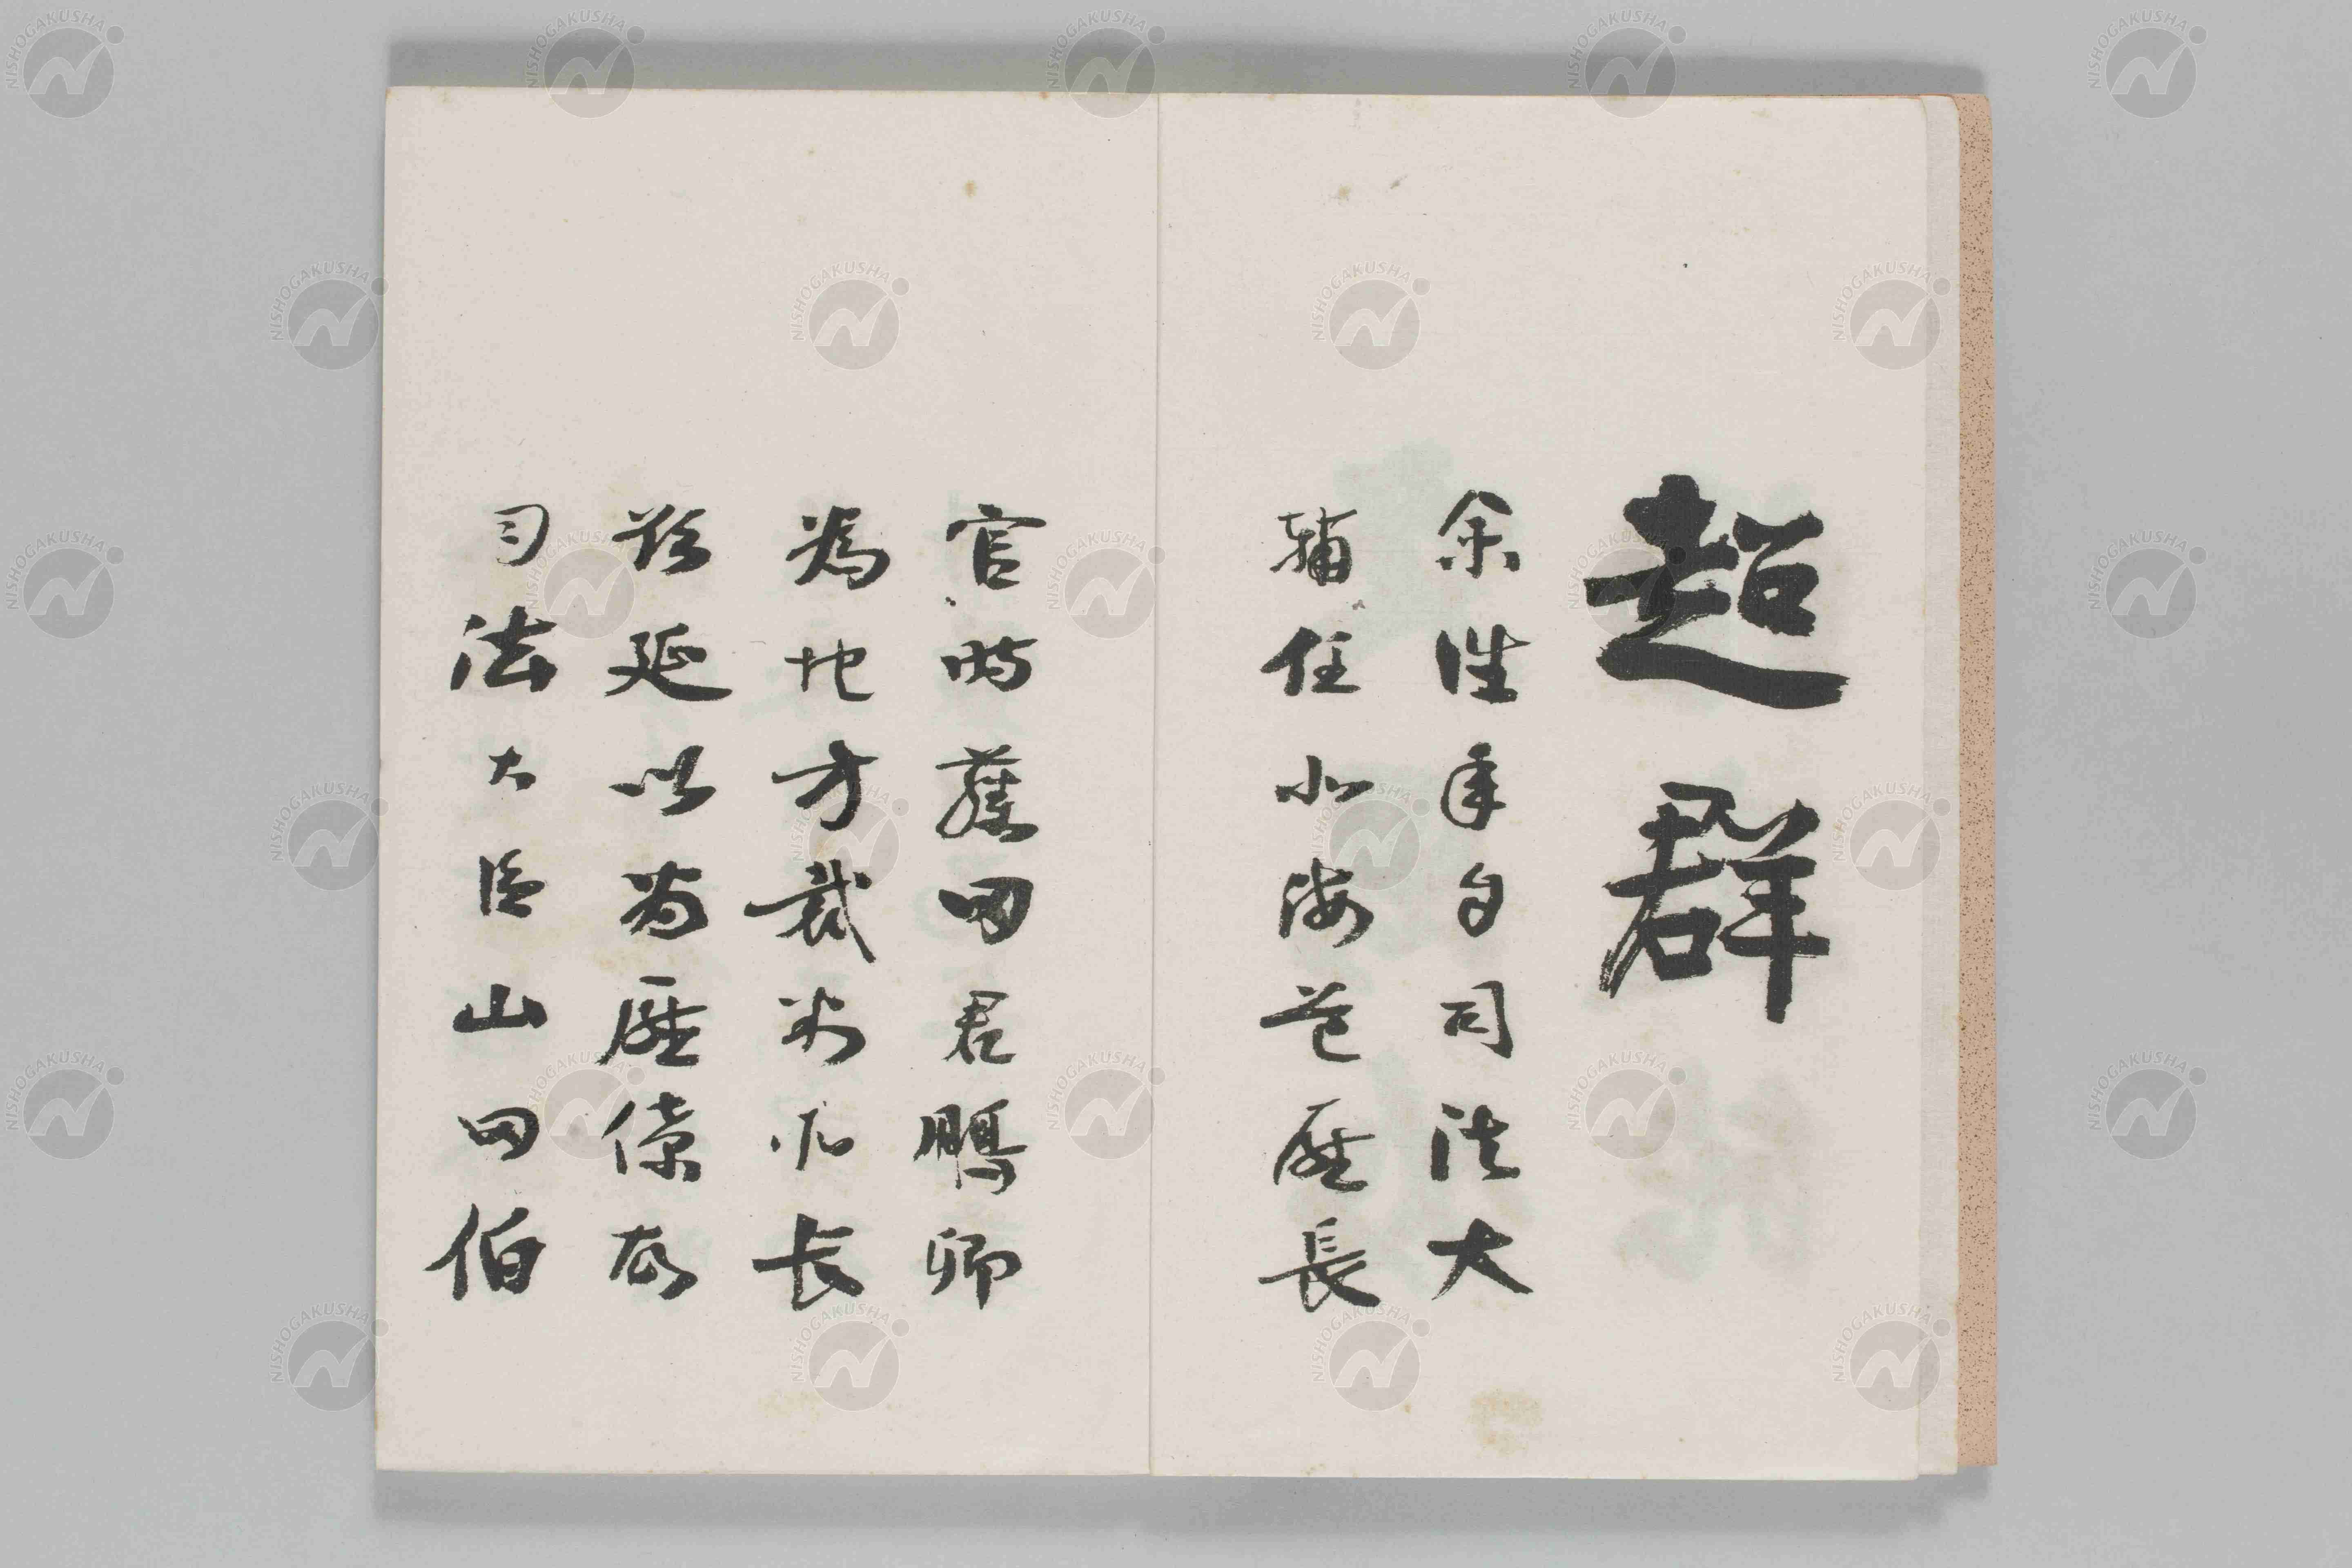 超群
余往年自司法大
輔任北海道廳長
官時田君鵬卿
為地方裁判所長
欲延以為廳僚
司法大臣山田伯
NISHOGAKUSHA